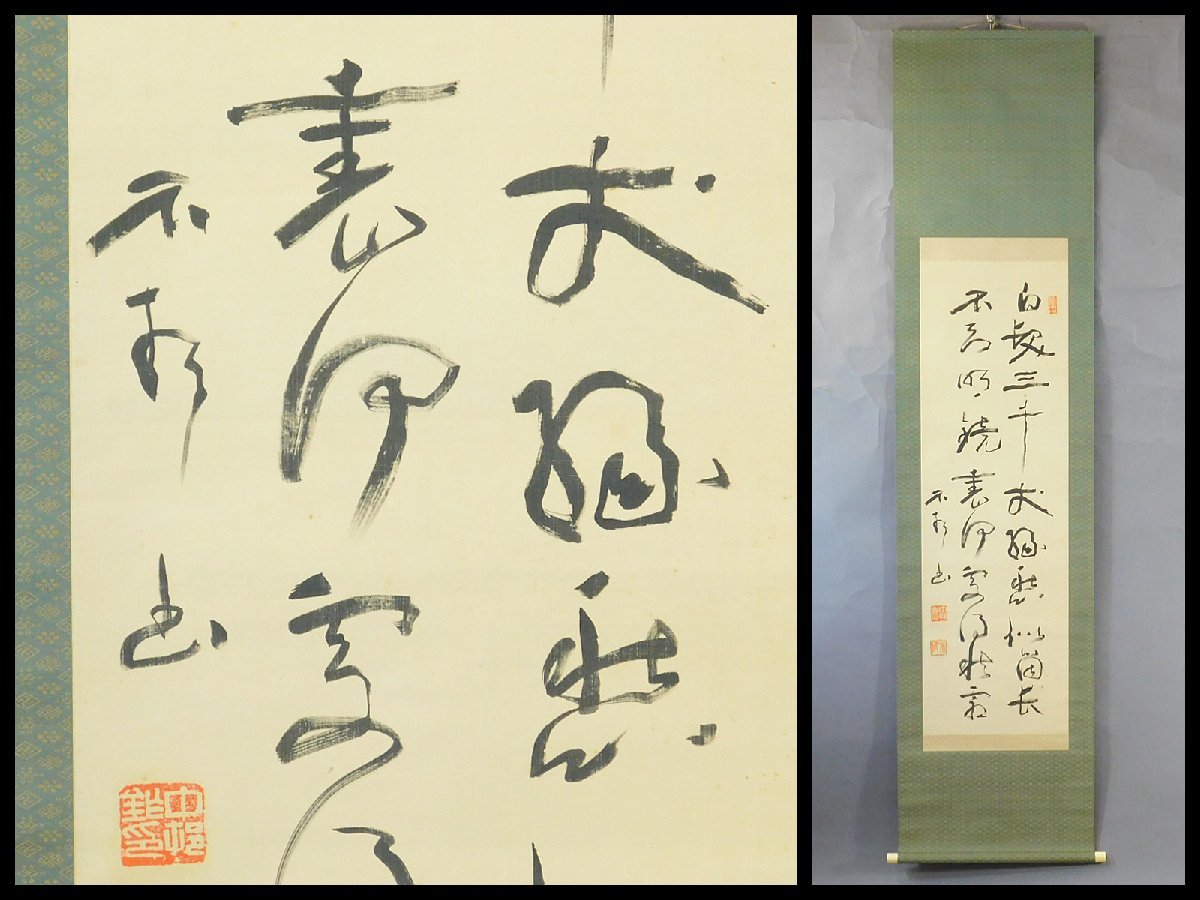 白髪三千丈縁愁似箇長
不知明鏡裏何処得秋霜
不折書